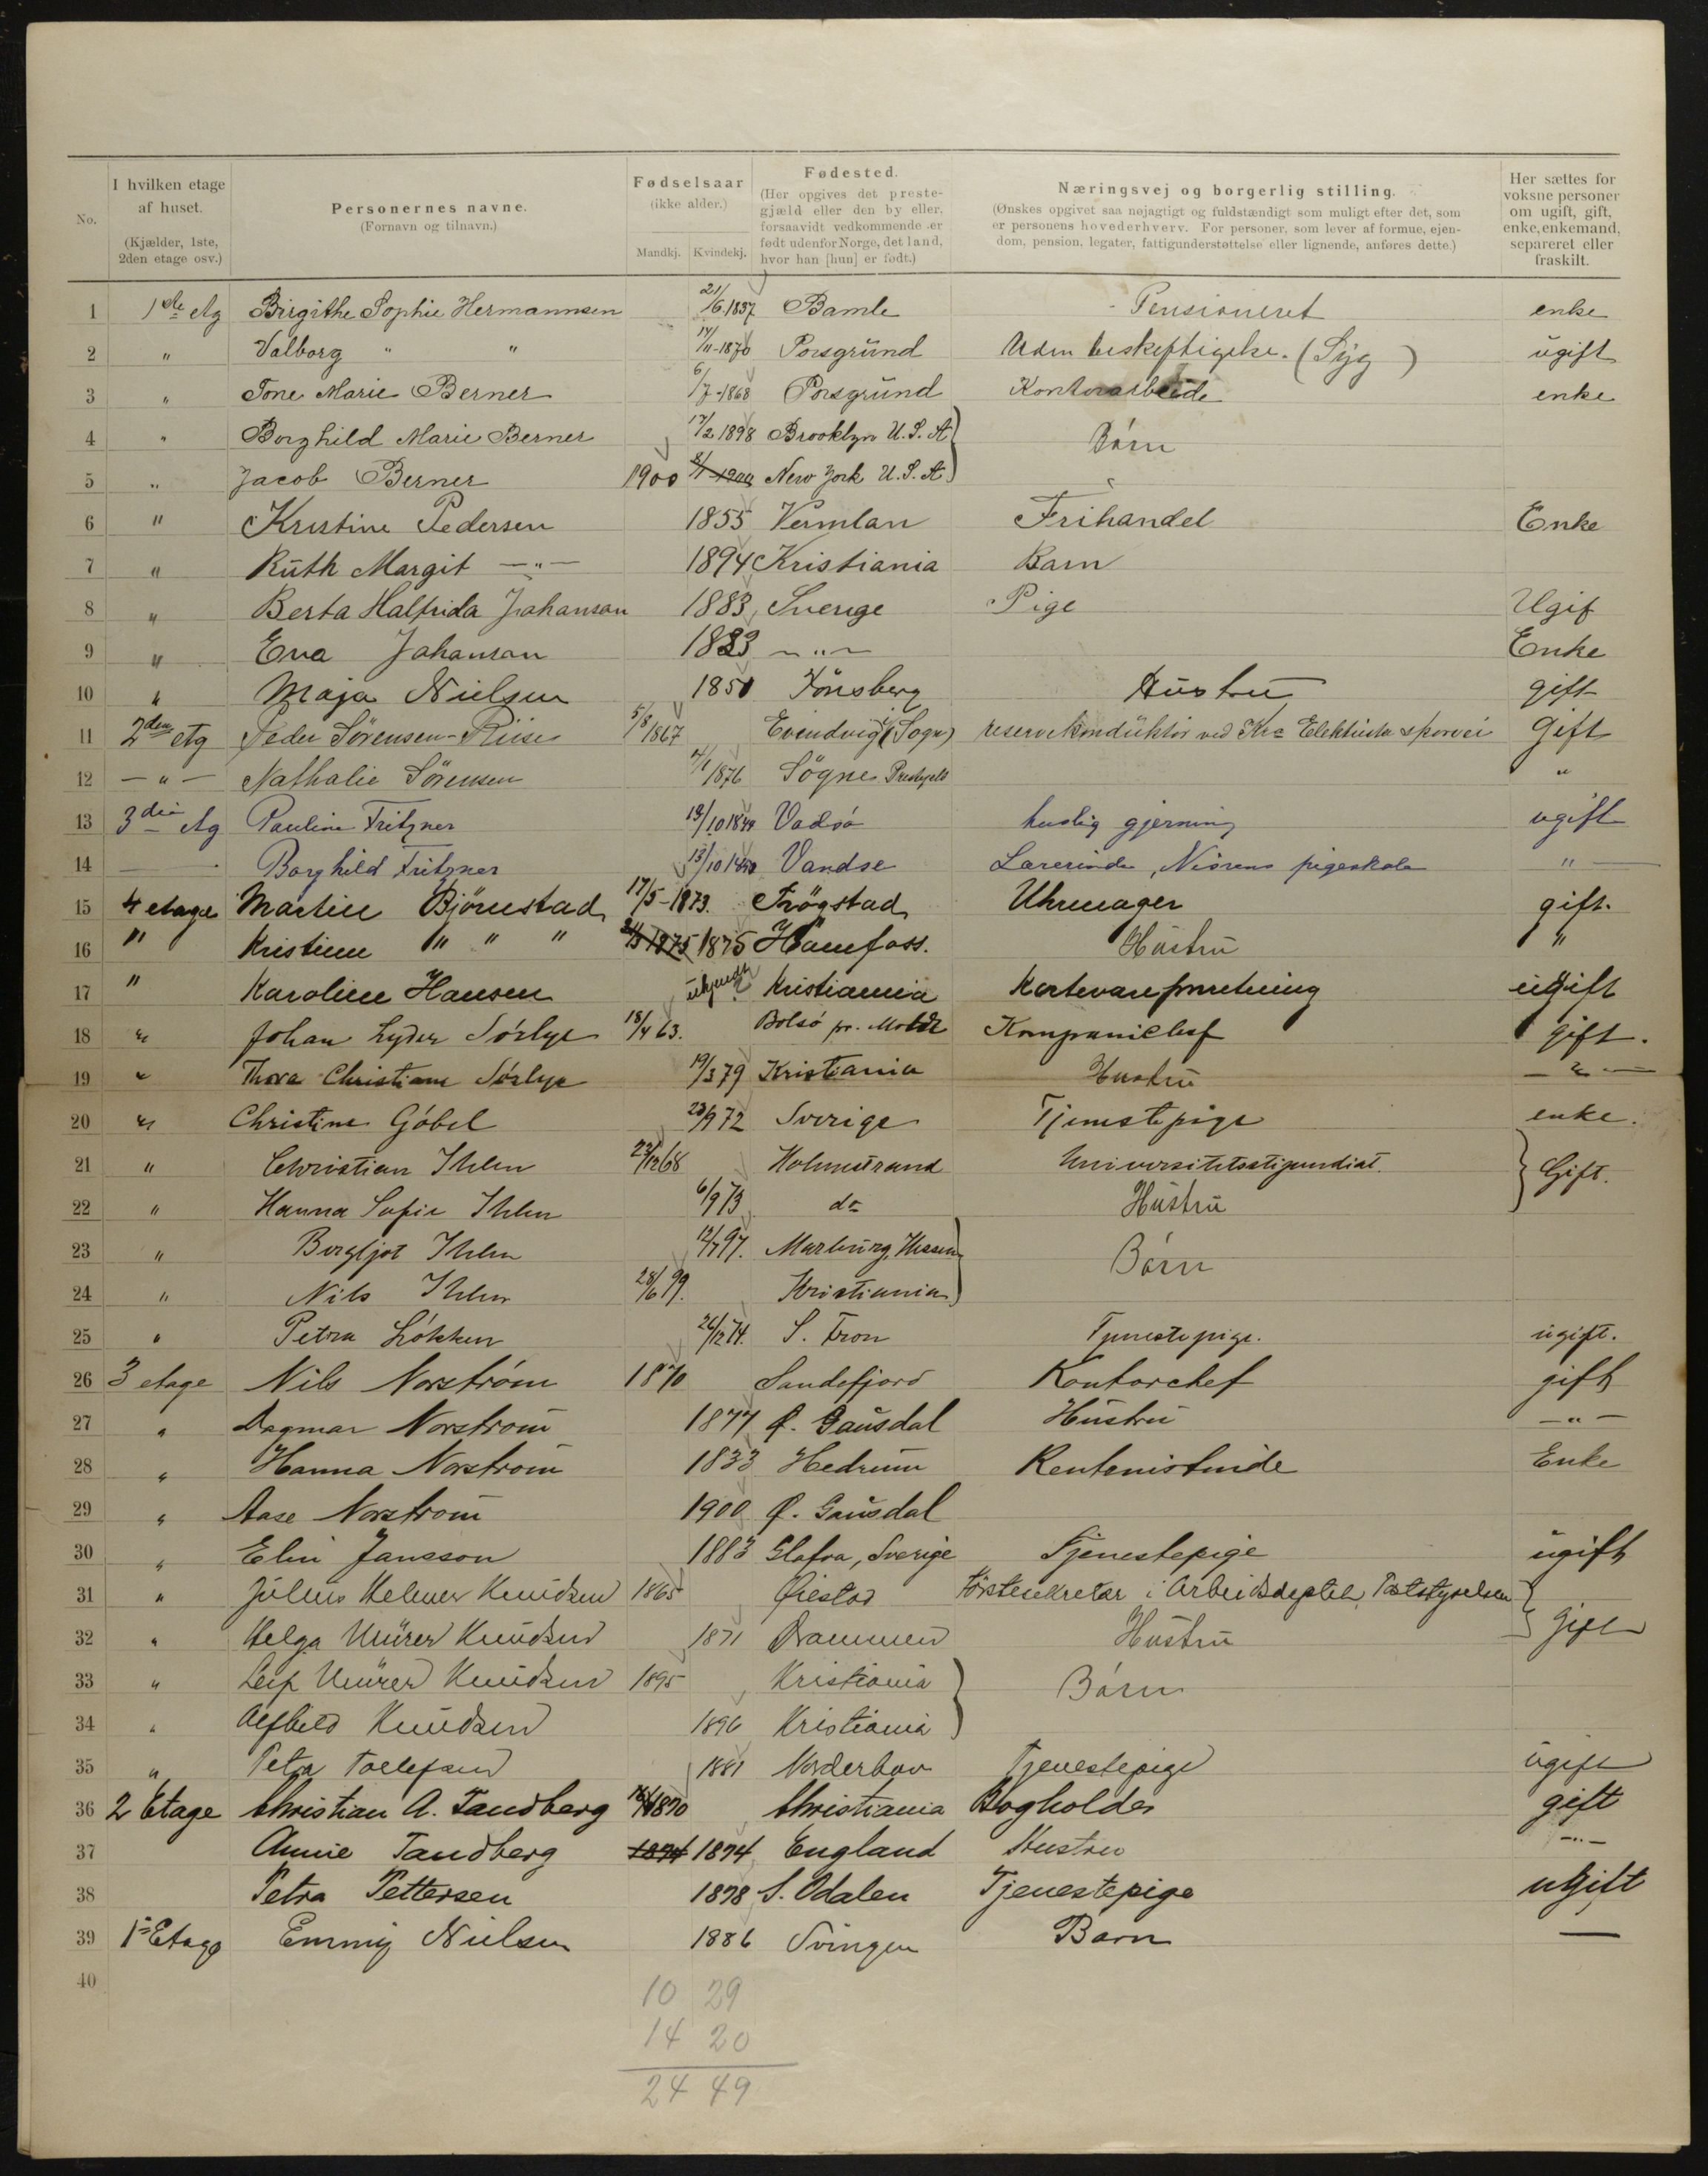 No.
I hvilken etage af huset. (Kjælder, 1ste, 2den etage osv.)
Personernes navne. (Fornavn og tilnavn.)
Fødselsaar (ikke alder.) Mandkj. Kvindekj.
Fødested. (Her opgives det prestegjæld eller den by eller, forsaavidt vedkommende er født udenfor Norge, det land, hvor han [hun] er født.)
Næringsvej og borgerlig stilling. (Ønskes opgivet saa nøjagtigt og fuldstændigt som muligt efter det, som er personens hovederhverv. For personer, som lever af formue, ejendom, pension, legater, fattigunderstøttelse eller lignende, anføres dette.)
Her sættes for voksne personer om ugift, gift, enke, enkemand, separeret eller fraskilt.
1 1ste Etg Birgithe Sophie Hermannsen 21/6.1837 Bamle Pensioneret enke
2 " Valborg " " 14/11-1870 Porsgrund Uden beskeftigelse. (Syg) ugift
3 " Tone Marie Berner 6/7-1868 Porsgrund Kontorarbeide enke
4 " Borghild Marie Berner 17/2 1898 Brooklyn U.S.A Börn
5 " Jacob Berner 1900 8/1 1900 New York U.S.A
6 " Kristine Pedersen 1855 Vermlan Frihandel Enke
7 " Ruth Margit —"— 1894 Kristiania Barn
8 " Berta Halfrida Johanson 1883 Sverige Pige Ugif
9 " Eva Johanson —"— Enke
10 " Maja Nielsen 1850 Tönsberg Hustru gift
11 2den etg Peder Sörensen-Riise 5/8 1867 Evindvig (Sogn) reservekonduktör ved Kra Elektriske sporvei Gift
12 —"— Nathalie Sörensen 4/1 1876 Sögne Prestgeld "
13 3die Etg Pauline Fritzner 13/10 1849 Vadsö huslig gjerning ugift
14 — Borghild Fritzner 13/10 Vandse Lærerinde, Nissens pigeskole "—
15 4 etage Martin Björnstad 17/5-1873. Trögstad Uhrmager gift.
16 " Kristine " " " 1875 1875 Hönefoss. Hustru "
17 " Karoline Hansen ukjendt Kristiania Kortevareforretning ugift
18 " Johan Lyder Sörlye 18/4 63. Bolsö pr. Molde Kompanichef gift.
19 " Thora Christiane Sörlye 19/3 79 Kristiania Hustru —"—
20 " Christine Göbel 23/9 72 Sverige Tjenestepige enke.
21 " Christian Ihlen 22/12 68 Holmestrand Universitetsstipendiat. Gift.
22 " Hanna Sofie Ihlen 6/9 73 do Hustru
23 " Bergljot Ihlen 12/7 97. Marburg, Hessen Börn
24 " Nils Ihlen 28/6 99. Kristiania
25 " Petra Lökken 26/12 74. S. Fron Tjenestepige. ugift.
26 3 etage Nils Norström 1870 Sandefjord Kontorchef gift
27 " Dagmar Norström 1877 Ø. Gausdal Hustru —"—
28 " Hanna Norström 1833 Hedrum Rentenistinde Enke
29 " Aase Norström 1900 Ø. Gausdal
30 " Elin Jansson 1883 Glafva, Sverige Tjenestepige ugift
31 " Julius Helmer Knudsen 1865 Øiestad Förstesekretær i Arbeidsdeptet, Poststyrelsen Gift
32 " Helga Mürer Knudsen 1871 Drammen Hustru
33 " Leif Mürer Knudsen 1895 Kristiania Börn
34 " Alfhild Knudsen 1896 Kristiania
35 " Petra Tollefsen 1881 Norderhov Tjenestepige ugift
36 2 Etage Christian A. Tandberg 1870 Christiania Bogholder gift
37 Annie Tandberg 1874 1874 England Hustru —"—
38 Petra Pettersen 1878 S. Odalen Tjenestepige ugift
39 1ste Etage Emmy Nielsen 1886 Svingen Barn —
40
10 29
14 20
24 49